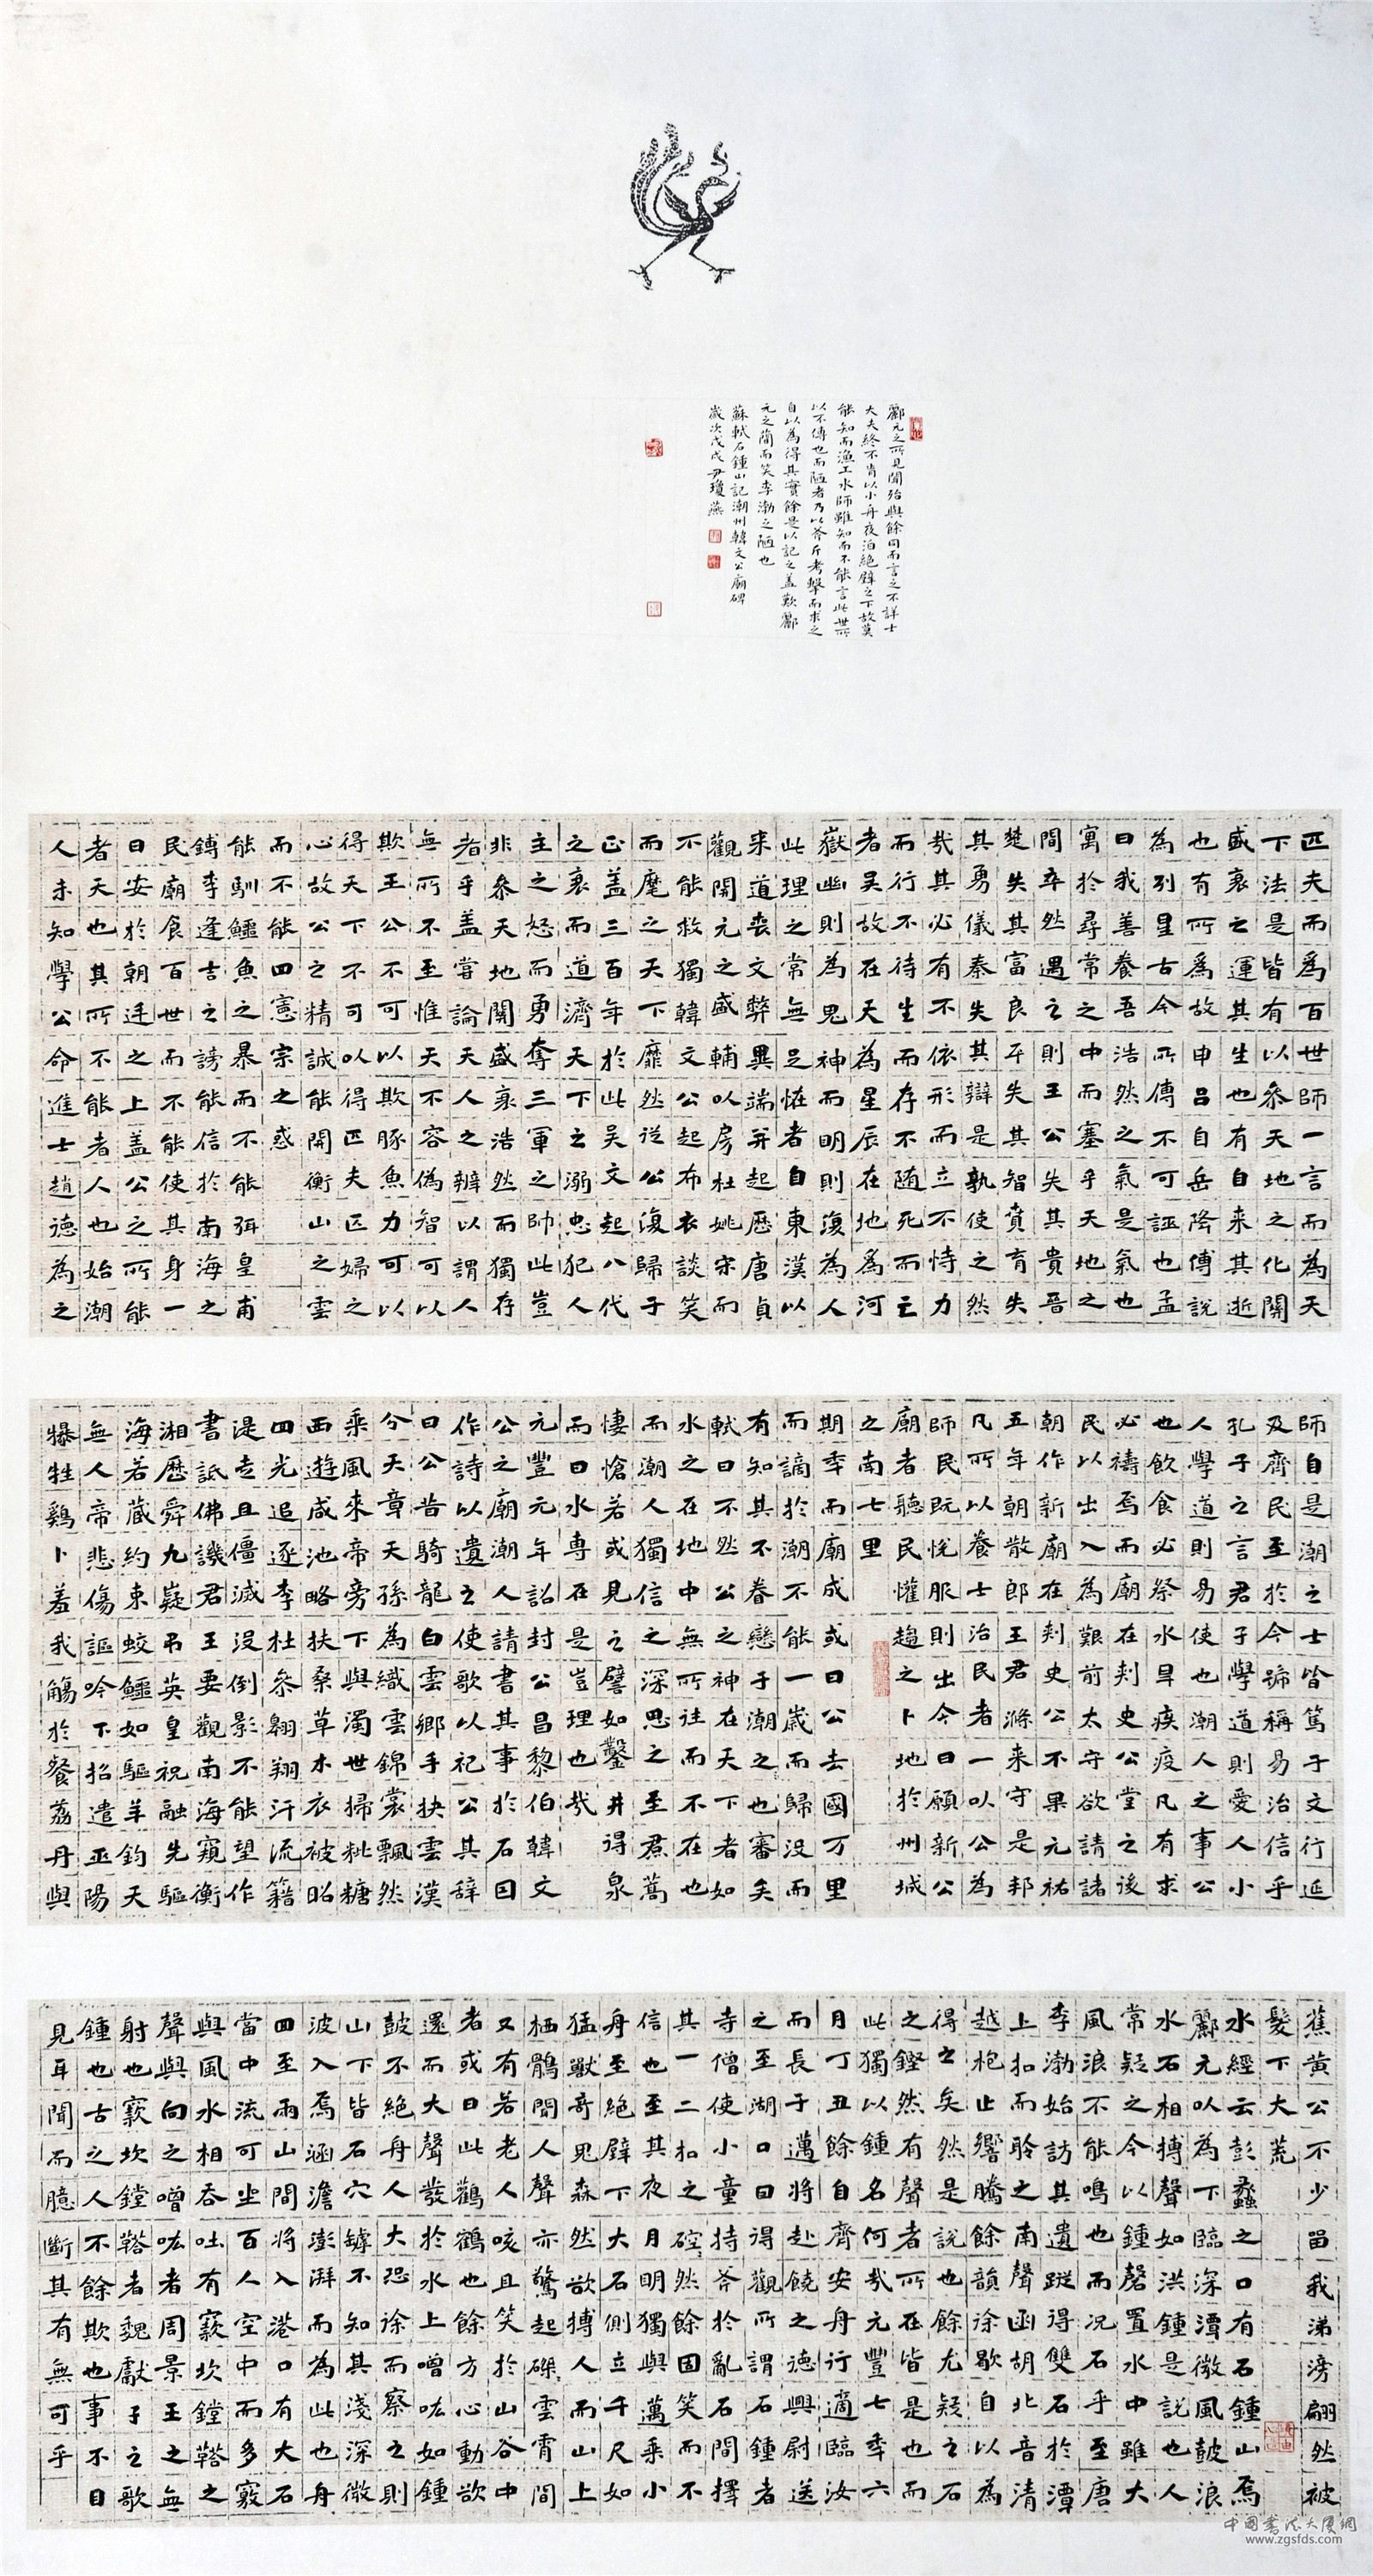 匹夫而為百世師一言而為天
下法是皆有以叅天地之化關
盛衰之運其生也有自来其逝
也有所為故申吕自岳降傅說
為列星古今所傳不可誣也孟
曰我善養吾浩然之氣是氣也
寓於尋常之中而塞乎天地之
間卒然遇之則王公失其貴晉
楚失其富良平失其智賁育失
其勇儀秦失其辯是孰使之然
哉其必有不依形而立不恃力
而行不待生而存不随死而亡
者吴故在天為星辰在地為河
嶽幽則為鬼神而明則復為人
此理之常無足怪者自東漢以
来道喪文弊異端並起歷唐貞
觀開元之盛輔以房杜姚宋而
不能救獨韓文公起布衣談笑
而麾之天下靡然從公復歸于
正蓋三百年於此吴文起八代
之衰而道濟天下之溺忠犯人
主之怒而勇奪三軍之帥此豈
非叅天地關盛衰浩然而獨存
者乎盖嘗論天人之辨以謂人
無所不至惟天不容偽智可以
欺王公不可以欺豚魚力可以
得天下不可以得匹夫匹婦之
心故公之精誠能開衡山之雲
而不能四憲宗之惑
能馴鱷魚之暴而不能弭皇甫
鎛李逢吉之謗能信於南海之
民廟食百世而不能使其身一
日安於朝廷之上蓋公之所能
者天也其所不能者人也始潮
人未知學公命進士趙德為之
師自是潮之士皆篤于文行延
及齊民至於今號稱易治信乎
孔子之言君子學道則愛人小
人學道則易使也潮人之事公
也飲食必祭水旱疾疫凡有求
必禱焉而廟在刺史公堂之後
民以出入為艱前太守欲請諸
朝作新廟在刺史公不果元祐
五年朝散郎王君滌来守是邦
凡所以養士治民者一以公為
師民既悅服則出今曰願新公
廟者聽民懽趨之卜地於州城
之南七里
期年而廟成或曰公去國万里
而謫於潮不能一歲而歸没而
有知其不眷戀于潮之也審矣
軾曰不然公之神在天下者如
水之在地中無所往而不在也
而潮人獨信之深思之至焄蒿
悽愴若或見之譬如鑿井得泉
而曰水專在是豈理也哉
元豐元年詔封公昌黎伯韓文
公之廟潮人請書其事於石因
作詩以遺之使歌以祀公其辭
曰公昔騎龍白雲鄉手抉雲漢
分天章天孫為織雲錦裳飄然
乘風來帝旁下與濁世掃粃糠
西遊咸池略扶桑草木衣被昭
四光追逐李杜叅翱翔汗流籍
湜走且僵滅没倒影不能望作
書詆佛譏君王要觀南海窺衡
湘歷舜九嶷弔英皇祝融先驅
海若藏約束蛟鱷如驅羊鈞天
無人帝悲傷謳吟下招遣巫陽
犦牲鷄卜羞我觴於餐荔丹與
蕉黄公不少留我涕滂翩然被
髮下大荒
水經云彭蠡之口有石鍾山焉
酈元以為下臨深潭微風鼓浪
水石相搏聲如洪鍾是說也人
常疑之今以鍾磬置水中雖大
風浪不能鳴也而况石乎至唐
李渤始訪其遺蹤得雙石於潭
上扣而聆之南聲函胡北音清
越枹止響騰餘韻徐歇自以為
得之矣然是說也餘尤疑之石
之鏗然有聲者所在皆是也而
此獨以鍾名何哉元豐七年六
月丁丑餘自齊安舟行適臨汝
而長子邁將赴饒之德興尉送
之至湖口曰得觀所謂石鍾者
寺僧使小童持斧於亂石間擇
其一二扣之硿然餘固笑而不
信也至其夜月明獨與邁乘小
舟至絕壁下大石側立千尺如
猛獸奇鬼森然欲搏人而山上
栖鶻聞人聲亦驚起磔雲霄間
又有若老人咳且笑於山谷中
者或曰此鸛鶴也餘方心動欲
還而大聲發於水上噌吰如鍾
鼓不絕舟人大恐徐而察之則
山下皆石穴罅不知其淺深微
波入焉涵澹澎湃而為此也舟
四至兩山間將入港口有大石
當中流可坐百人空中而多竅
與風水相吞吐有窾坎鏜鞳之
聲與向之噌吰者周景王之無
射也窾坎鏜鞳者魏獻子之歌
鍾也古之人不餘欺也事不目
見耳聞而臆斷其有無可乎
酈元之所見聞殆與餘同而言之不詳士
大夫終不肯以小舟夜泊絕壁之下故莫
能知而漁工水師雖知而不能言此世所
以不傳也而陋者乃以斧斤考擊而求之
自以為得其實餘是以記之盖歎酈
元之簡而笑李渤之陋也
蘇軾石鍾山記潮州韓文公廟碑
歲次戊戌尹瓊燕
中國書法大廈網
www.zgsfds.com